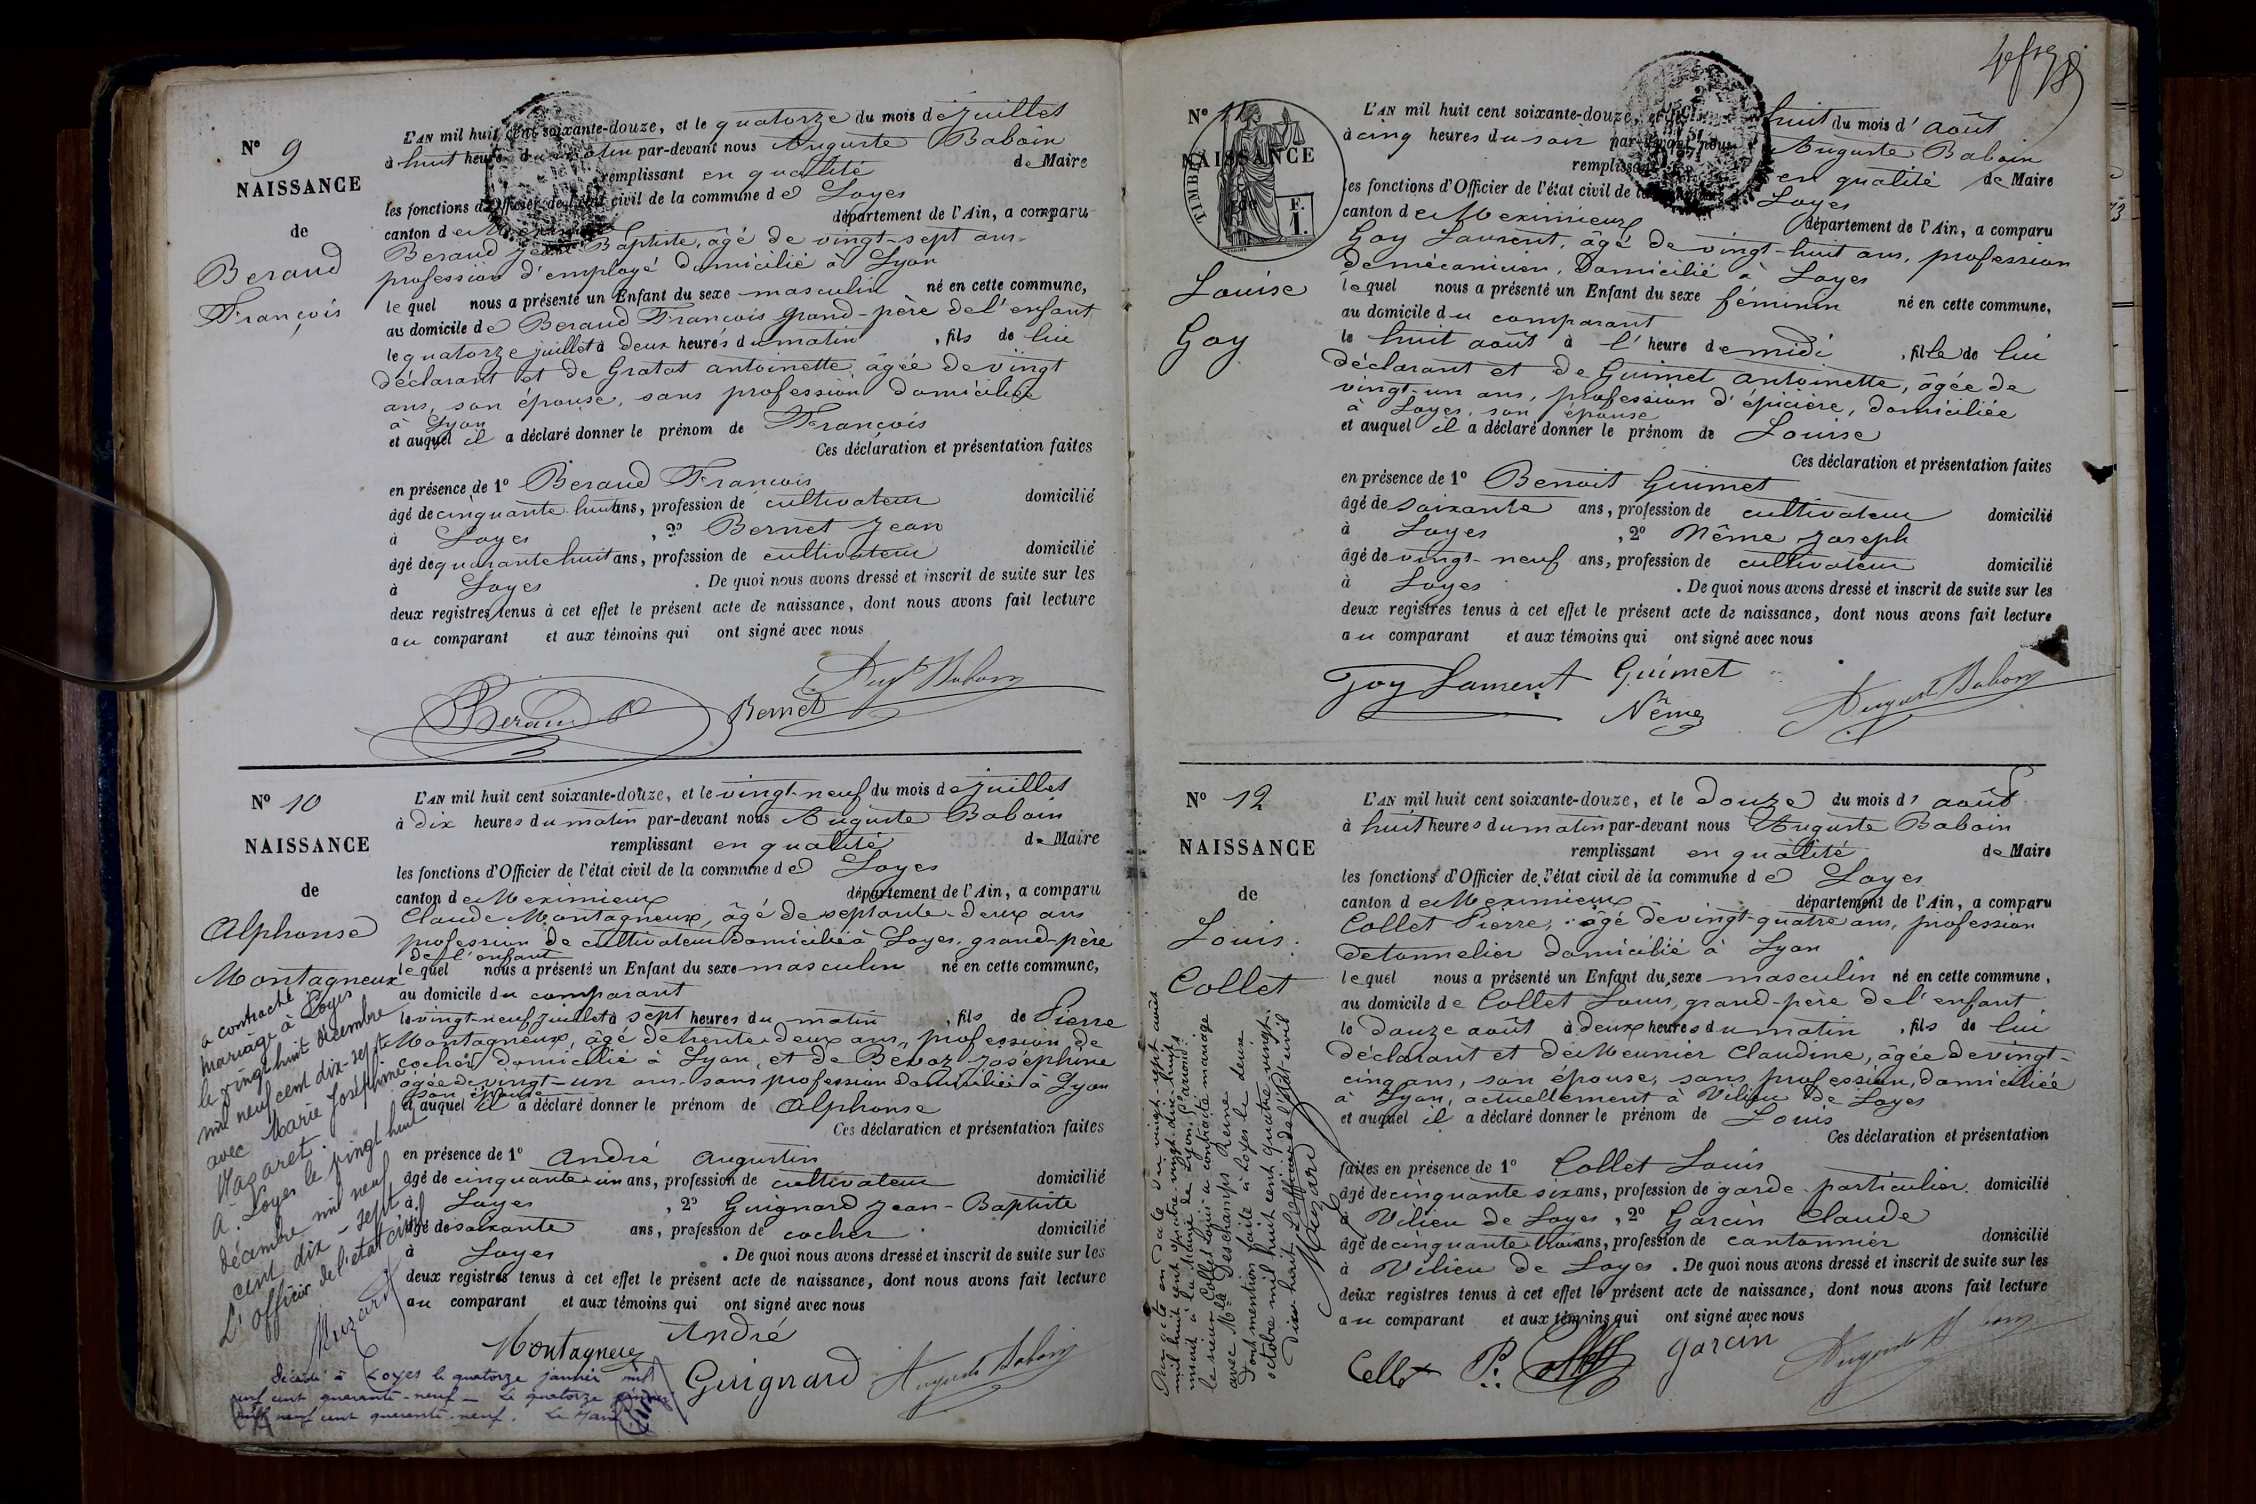 N° 9
NAISSANCE
de
Beraud
François
L'AN mil huit cent soixante-douze, et le quatorze du mois de juillet
à huit heures du matin par-devant nous Auguste Baboin
remplissant en qualité de Maire
les fonctions d'Officier de l'état civil de la commune de Loyes
canton de Meximieux département de l'Ain, a comparu
Beraud Jean Baptiste, âgé de vingt-sept ans
profession d'employé domicilié à Lyon
lequel nous a présenté un Enfant du sexe masculin né en cette commune,
au domicile de Beraud François grand-père de l'enfant
le quatorze juillet à deux heures du matin, fils de lui
déclarant et de Gratat antoinette, âgée de vingt
ans, son épouse, sans profession domiciliée
à Lyon
et auquel il a déclaré donner le prénom de François
Ces déclaration et présentation faites
en présence de 1° Beraud François
âgé de cinquante huit ans, profession de cultivateur domicilié
à Loyes, 2° Bernet Jean
âgé de quarante huit ans, profession de cultivateur domicilié
à Loyes. De quoi nous avons dressé et inscrit de suite sur les
deux registres tenus à cet effet le présent acte de naissance, dont nous avons fait lecture
au comparant et aux témoins qui ont signé avec nous
Beraud Bernet Aug Baboin
N° 10
NAISSANCE
de
Alphonse
Montagneux
L'AN mil huit cent soixante-douze, et le vingt-neuf du mois de juillet
à dix heures du matin par-devant nous Auguste Baboin
remplissant en qualité de Maire
les fonctions d'Officier de l'état civil de la commune de Loyes
canton de Meximieux département de l'Ain, a comparu
Claude Montagneux, âgé de septante-deux ans
profession de cultivateur domicilié à Loyes, grand-père
de l'enfant
lequel nous a présenté un Enfant du sexe masculin né en cette commune,
au domicile du comparant
le vingt-neuf juillet à sept heures du matin, fils de Pierre
Montagneux, âgé de trente deux ans, profession de
cocher, domicilié à Lyon, et de Bevoz Joséphine
âgée de vingt-un ans sans profession domiciliée à Lyon
son épouse
et auquel il a déclaré donner le prénom de Alphonse
Ces déclaration et présentation faites
en présence de 1° André Augustin
âgé de cinquante un ans, profession de cultivateur domicilié
à Loyes, 2° Guignard Jean-Baptiste
âgé de soixante ans, profession de cocher domicilié
à Loyes. De quoi nous avons dressé et inscrit de suite sur les
deux registres tenus à cet effet le présent acte de naissance, dont nous avons fait lecture
au comparant et aux témoins qui ont signé avec nous
Montagneux André
Guignard Auguste Baboin
a contracté
mariage à Loyes
le vingt huit décembre
mil neuf cent dix-sept
avec Marie Joséphine
Nazaret
A Loyes le vingt huit
décembre mil neuf
cent dix-sept
L'officier de l'état civil
Muzard
Décédé à Loyes le quatorze janvier mil
neuf cent quarante-neuf - Le quatorze janvier
mil neuf cent quarante-neuf. Le Maire
N° 11
NAISSANCE
de
TIMBRE
F.
1.
Louise
Goy
L'AN mil huit cent soixante-douze, et le huit du mois d'août
à cinq heures du soir par-devant nous Auguste Baboin
remplissant en qualité de Maire
les fonctions d'Officier de l'état civil de la Loyes
canton de Meximieux département de l'Ain, a comparu
Goy Laurent, âgé de vingt-huit ans, profession
de mécanicien, domicilié à Loyes
lequel nous a présenté un Enfant du sexe féminin né en cette commune,
au domicile du comparant
le huit août à l'heure de midi, fille de lui
déclarant et de Guimet antoinette, âgée de
vingt-un ans, profession d'épicière, domiciliée
à Loyes, son épouse
et auquel il a déclaré donner le prénom de Louise
Ces déclaration et présentation faites
en présence de 1° Benoit Guimet
âgé de soixante ans, profession de cultivateur domicilié
à Loyes, 2° Même Joseph
âgé de vingt-neuf ans, profession de cultivateur domicilié
à Loyes. De quoi nous avons dressé et inscrit de suite sur les
deux registres tenus à cet effet le présent acte de naissance, dont nous avons fait lecture
au comparant et aux témoins qui ont signé avec nous
Goy Laurent Guimet
Même August Baboin
N° 12
NAISSANCE
de
Louis
Collet
L'AN mil huit cent soixante-douze, et le douze du mois d'août
à huit heures du matin par-devant nous Auguste Baboin
remplissant en qualité de Maire
les fonctions d'Officier de l'état civil de la commune de Loyes
canton de Meximieux département de l'Ain, a comparu
Collet Pierre, âgé de vingt-quatre ans, profession
de tonnelier domicilié à Lyon
lequel nous a présenté un Enfant du sexe masculin né en cette commune,
au domicile de Collet Louis, grand-père de l'enfant
le douze août à deux heures du matin, fils de lui
déclarant et de Meunier Claudine, âgée de vingt-
cinq ans, son épouse, sans profession, domiciliée
à Lyon, actuellement à Vilieu de Loyes
et auquel il a déclaré donner le prénom de Louis
Ces déclaration et présentation
faites en présence de 1° Collet Louis
âgé de cinquante six ans, profession de garde-particulier domicilié
à Vilieu de Loyes, 2° Garcin Claude
âgé de cinquante trois ans, profession de cantonnier domicilié
à Vilieu de Loyes. De quoi nous avons dressé et inscrit de suite sur les
deux registres tenus à cet effet le présent acte de naissance, dont nous avons fait lecture
au comparant et aux témoins qui ont signé avec nous
Collet P. Collet Garcin August Baboin
Par acte en date du vingt sept août
mil huit cent quatre vingt dix huit
inscrit à la Mairie de Lyon
le sieur Collet Louis a contracté mariage
avec Mlle Deschamps Reine
Dont mention faite à Loyes le deux
octobre mil huit cent quatre vingt
dix huit. L'officier de l'état civil
Muzard